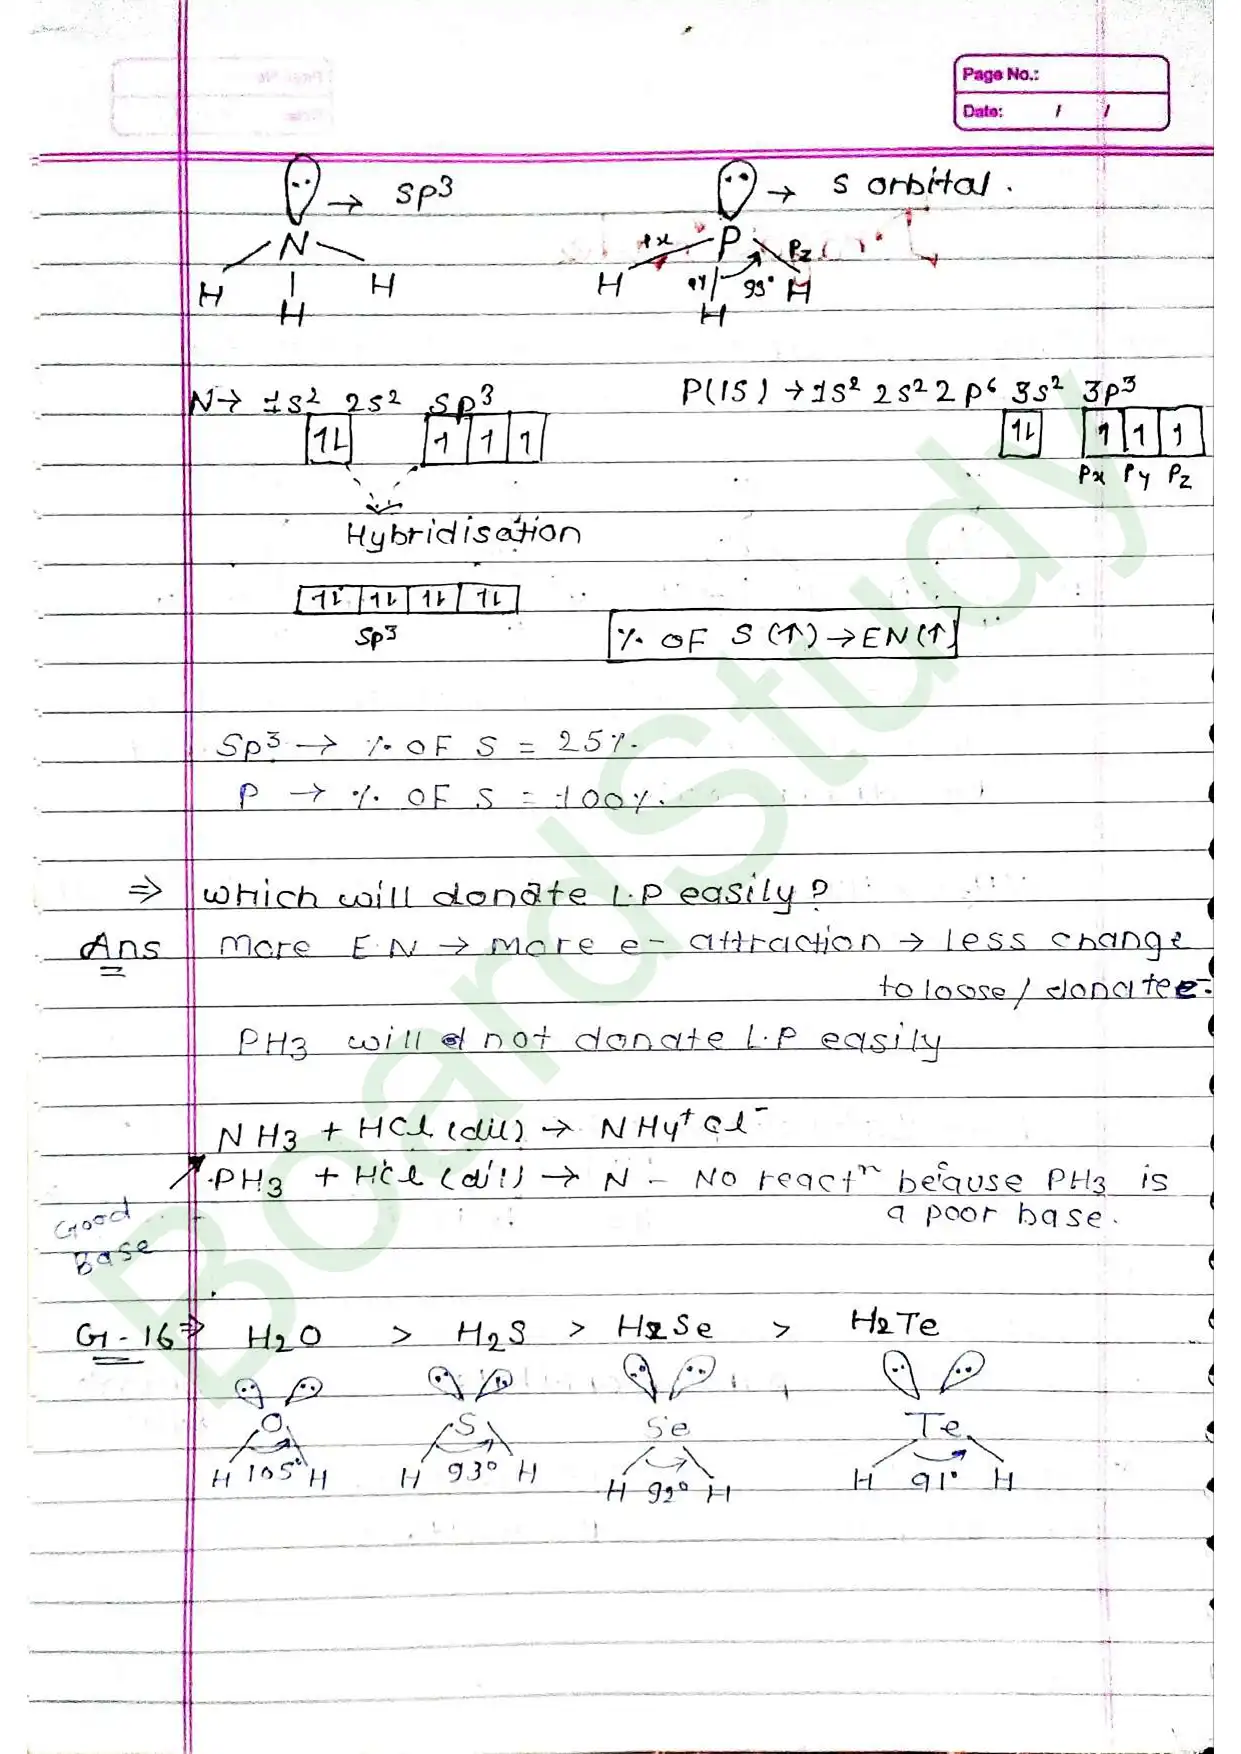 Page No.:
Date: / /
N → sp3
H H H
P → S orbital.
Px Py Pz 93°
H H H
N→ 1s2 2s2 sp3
P(15) → 1s2 2s2 2p6 3s2 3p3
1⇂ 1 1 1
1⇂ 1 1 1
Px Py Pz
Hybridisation
1⇂ 1⇂ 1⇂ 1⇂
sp3
% OF S (↑) → EN(↑)
Sp3 → % OF S = 25%.
P → % OF S = 100%.
⇒ Which will donate L.P easily?
Ans More E.N → more e- attraction → Less change
to loose/donate e-.
PH3 will not donate L.P easily
NH3 + HCl (dil) → NH4+ Cl-
PH3 + HCl (dil) → N - No reactn because PH3 is
a poor base.
Good
Base
G-16 ⇒ H2O > H2S > H2Se > H2Te
O S Se Te
H 105° H H 93° H H 92° H H 91° H
BoardStudy